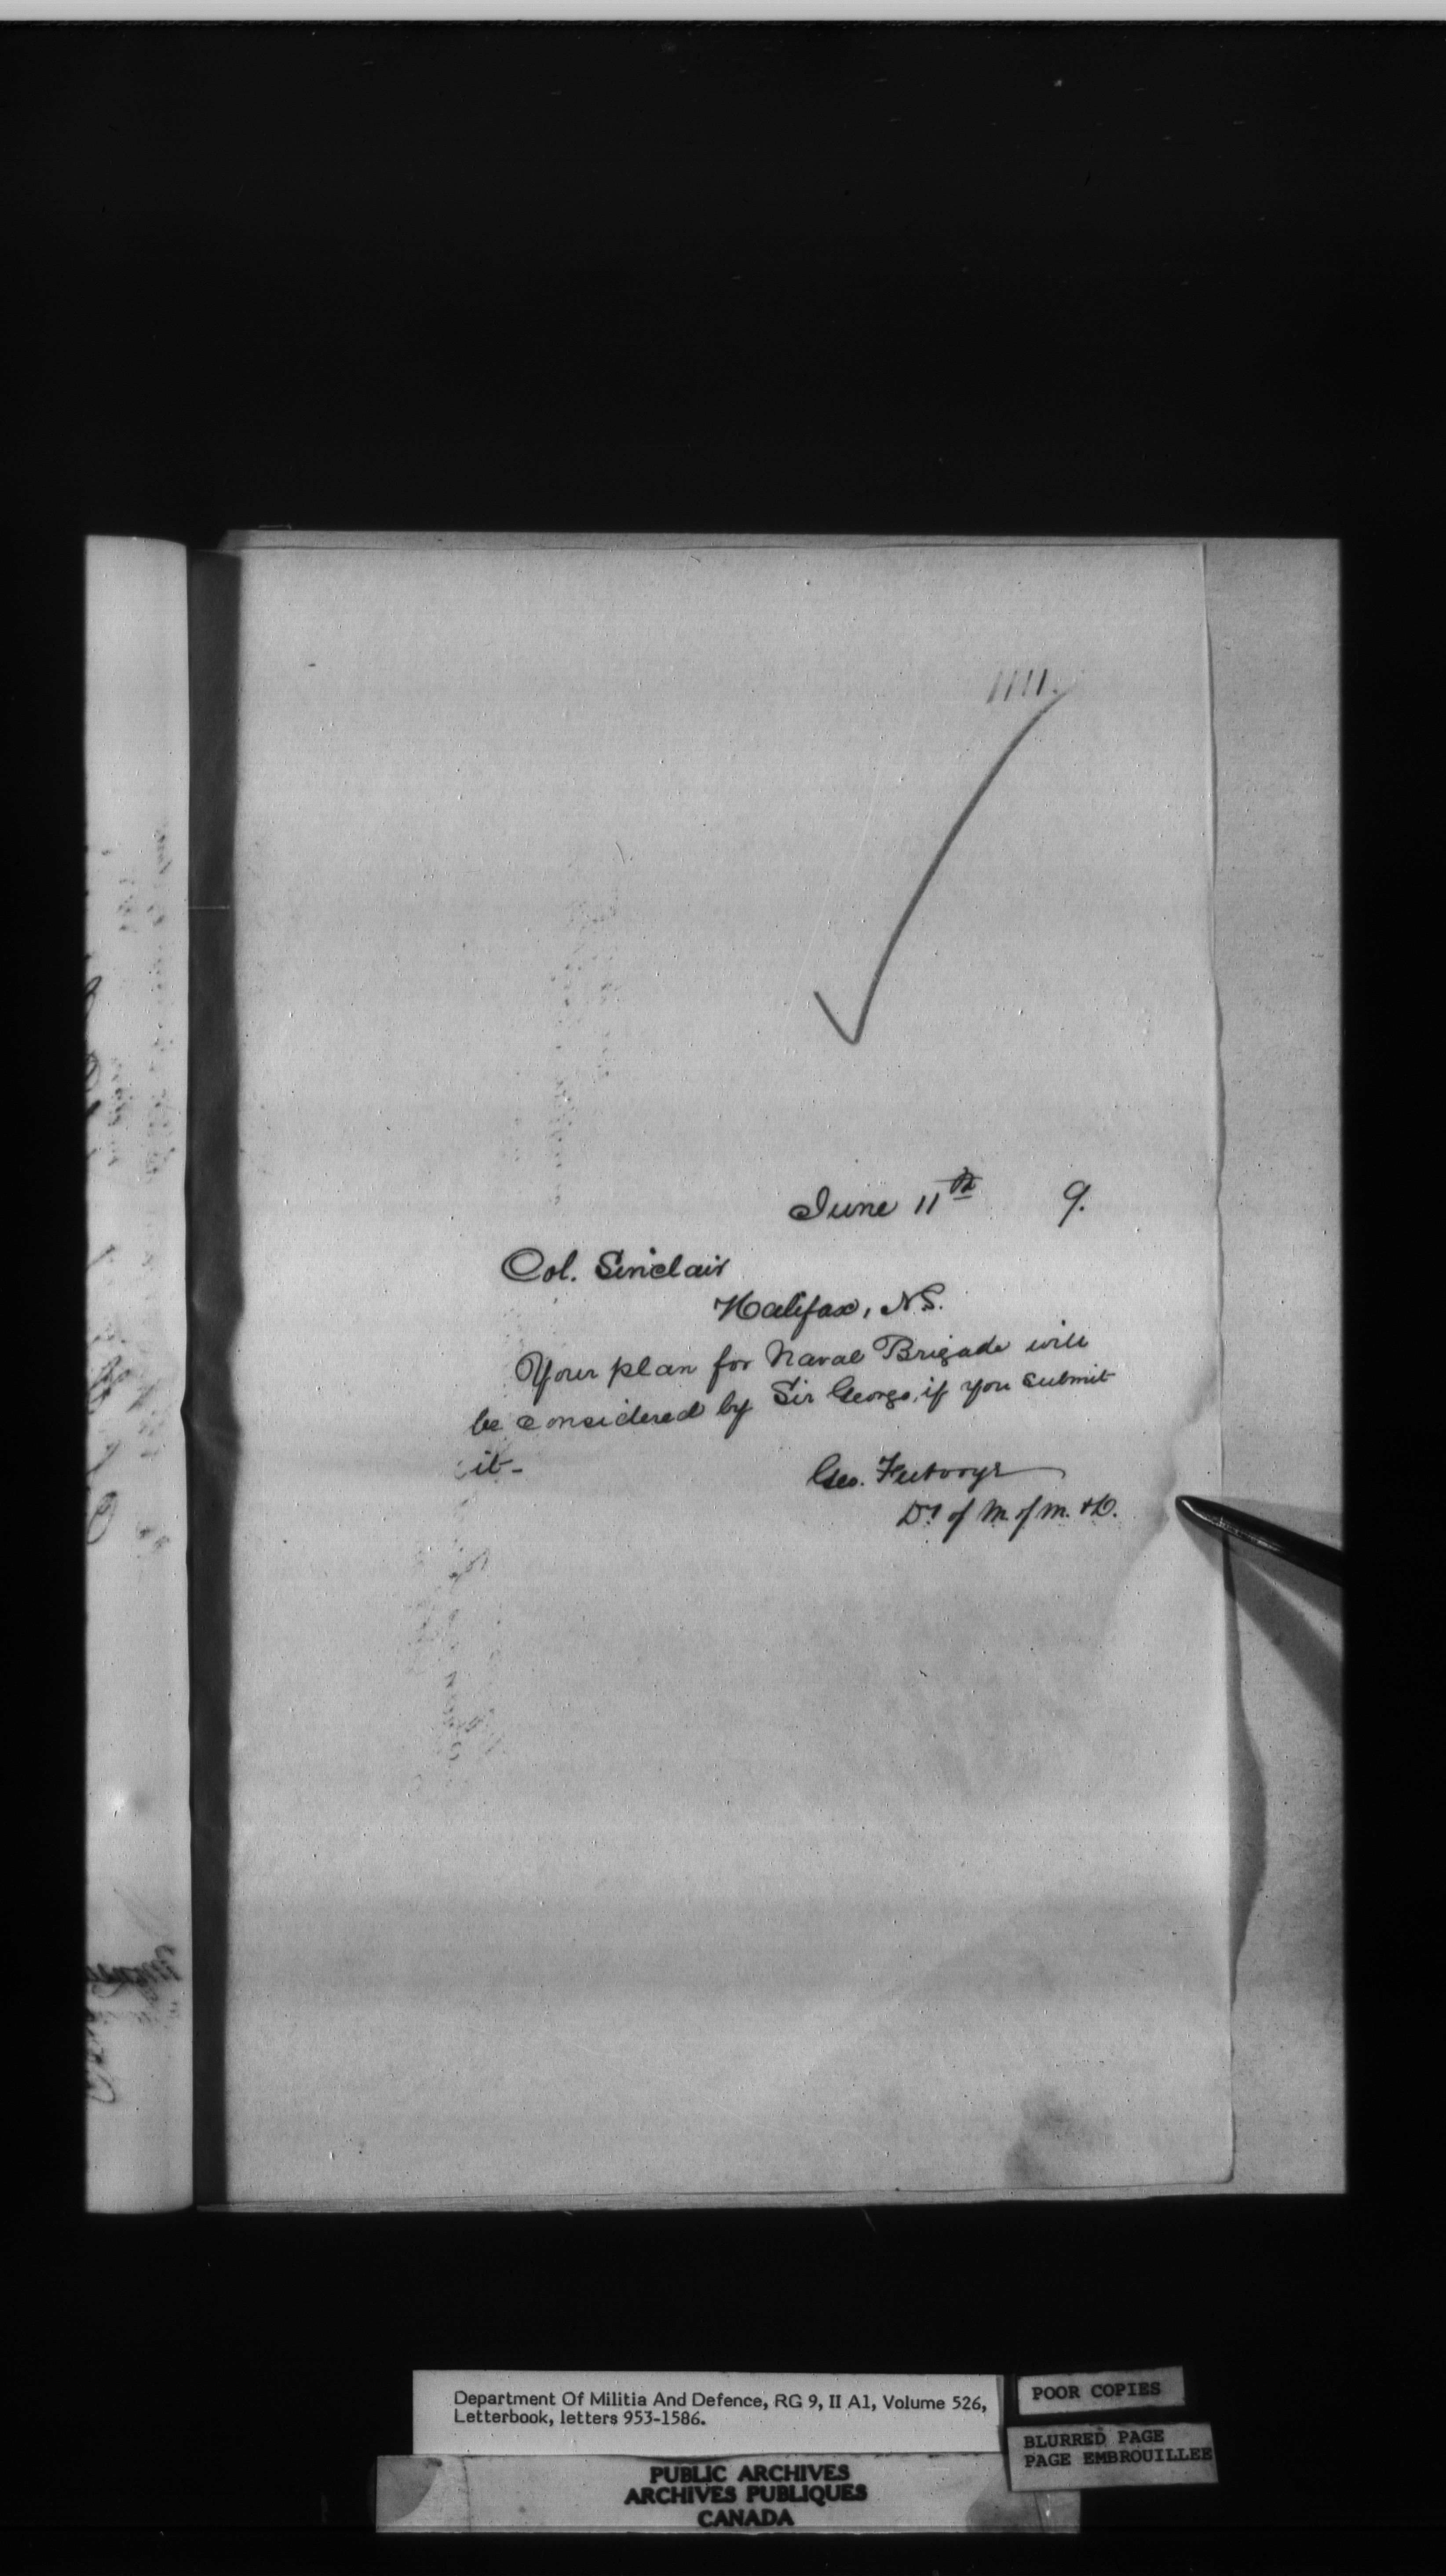 1111.
June 11th 9.
Col. Sinclair
Halifax, N.S.
Your plan for Naval Brigade will
be considered by Sir George, if you submit
it-
Geo. Futvoye
Dy of M of M. & D.
Department Of Militia And Defence, RG 9, II A1, Volume 526,
Letterbook, letters 953-1586.
POOR COPIES
BLURRED PAGE
PAGE EMBROUILLEE
PUBLIC ARCHIVES
ARCHIVES PUBLIQUES
CANADA